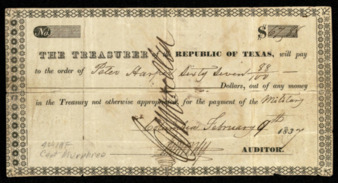 No $
THE TREASURER REPUBLIC OF TEXAS, will pay
to the order of Peter Harper Sixty Seven 88/100
Dollars, out of any money
in the Treasury not otherwise appropriated, for the payment of the Military
Columbia February 9th 1837
AUDITOR.